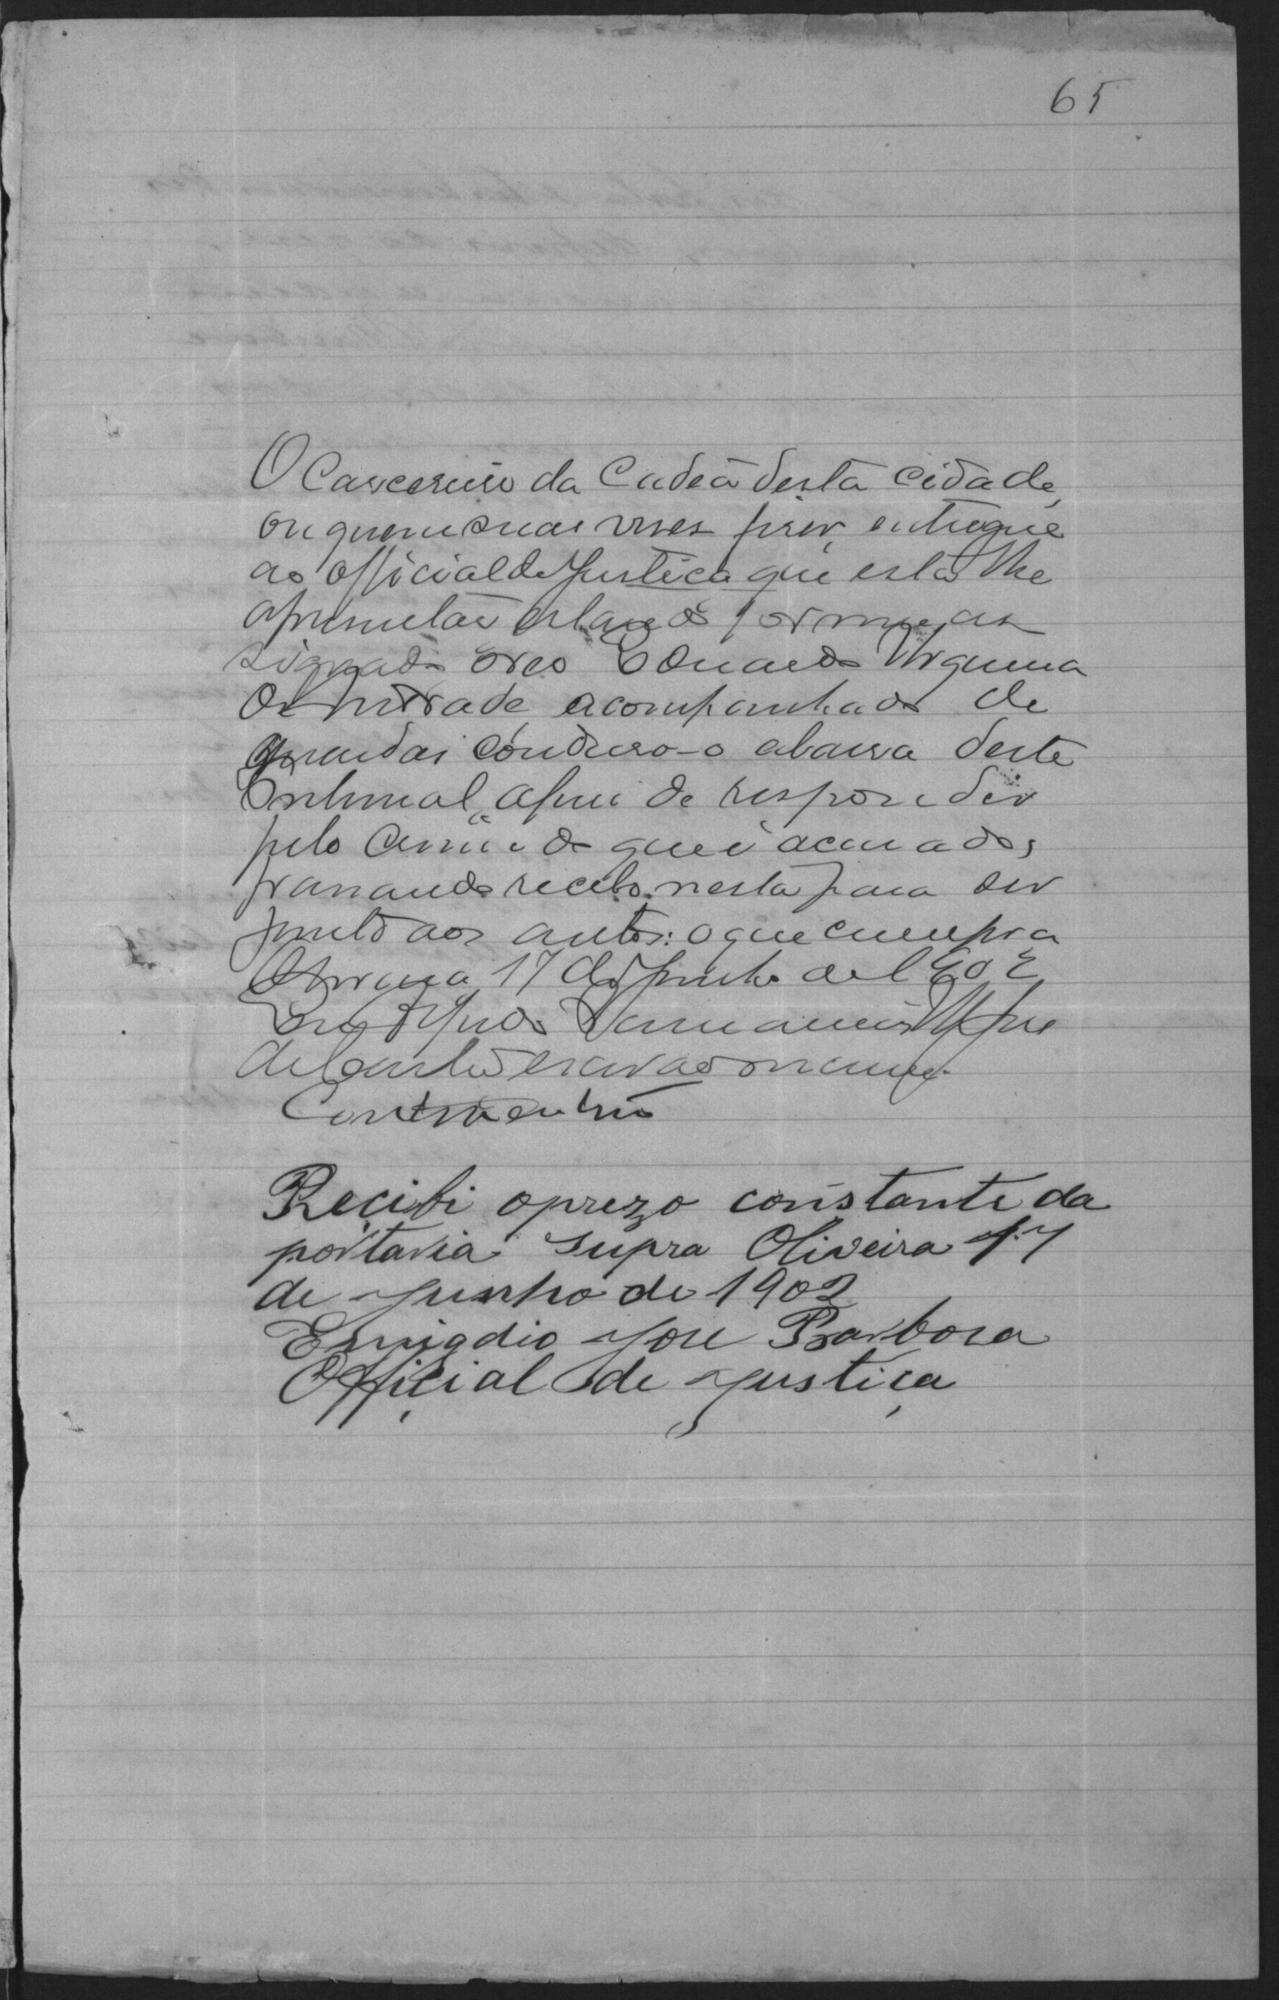 65
O Carcereiro da Cadeâ desta cidade,
ou quem suas vezes fizer, entregue
ao official de Justiça que esta lhe
apresentar estando por mim as
signado oreo Eduardo
de Andrade, acompanhado de
guardas conduso-o abarra deste
Tribunal, afim de responder
pelo crime de que é acusado,
recebo nesta para ser
junto aos autos: o que cumpra
Oliveira 17 de Junho de 1902
Eu
escrivão
Recibi oprezo constante da
portaria supra Oliveira 17
de Junho de 1902
Emigdio Jose Barbosa
Official de Justiça